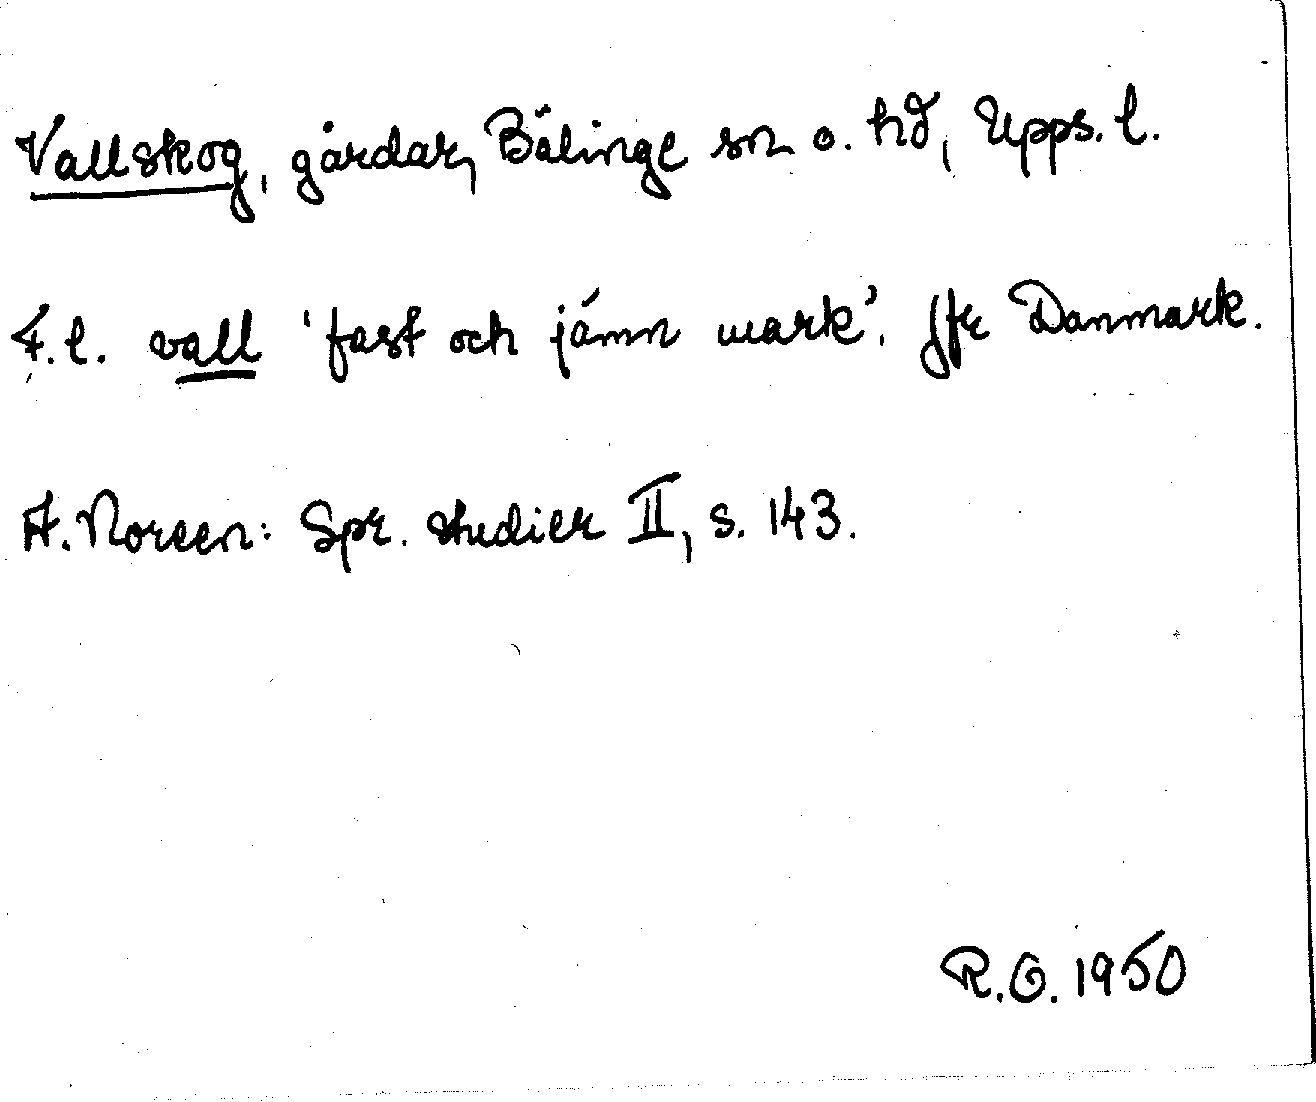 Vallskog, gårdar, Bälinge sn o. hd, Upps. l.
F. l. vall 'fast och jämn mark'. Jfr Danmark.
A. Noreen: Spr. studier II, s. 143.
R.O. 1950